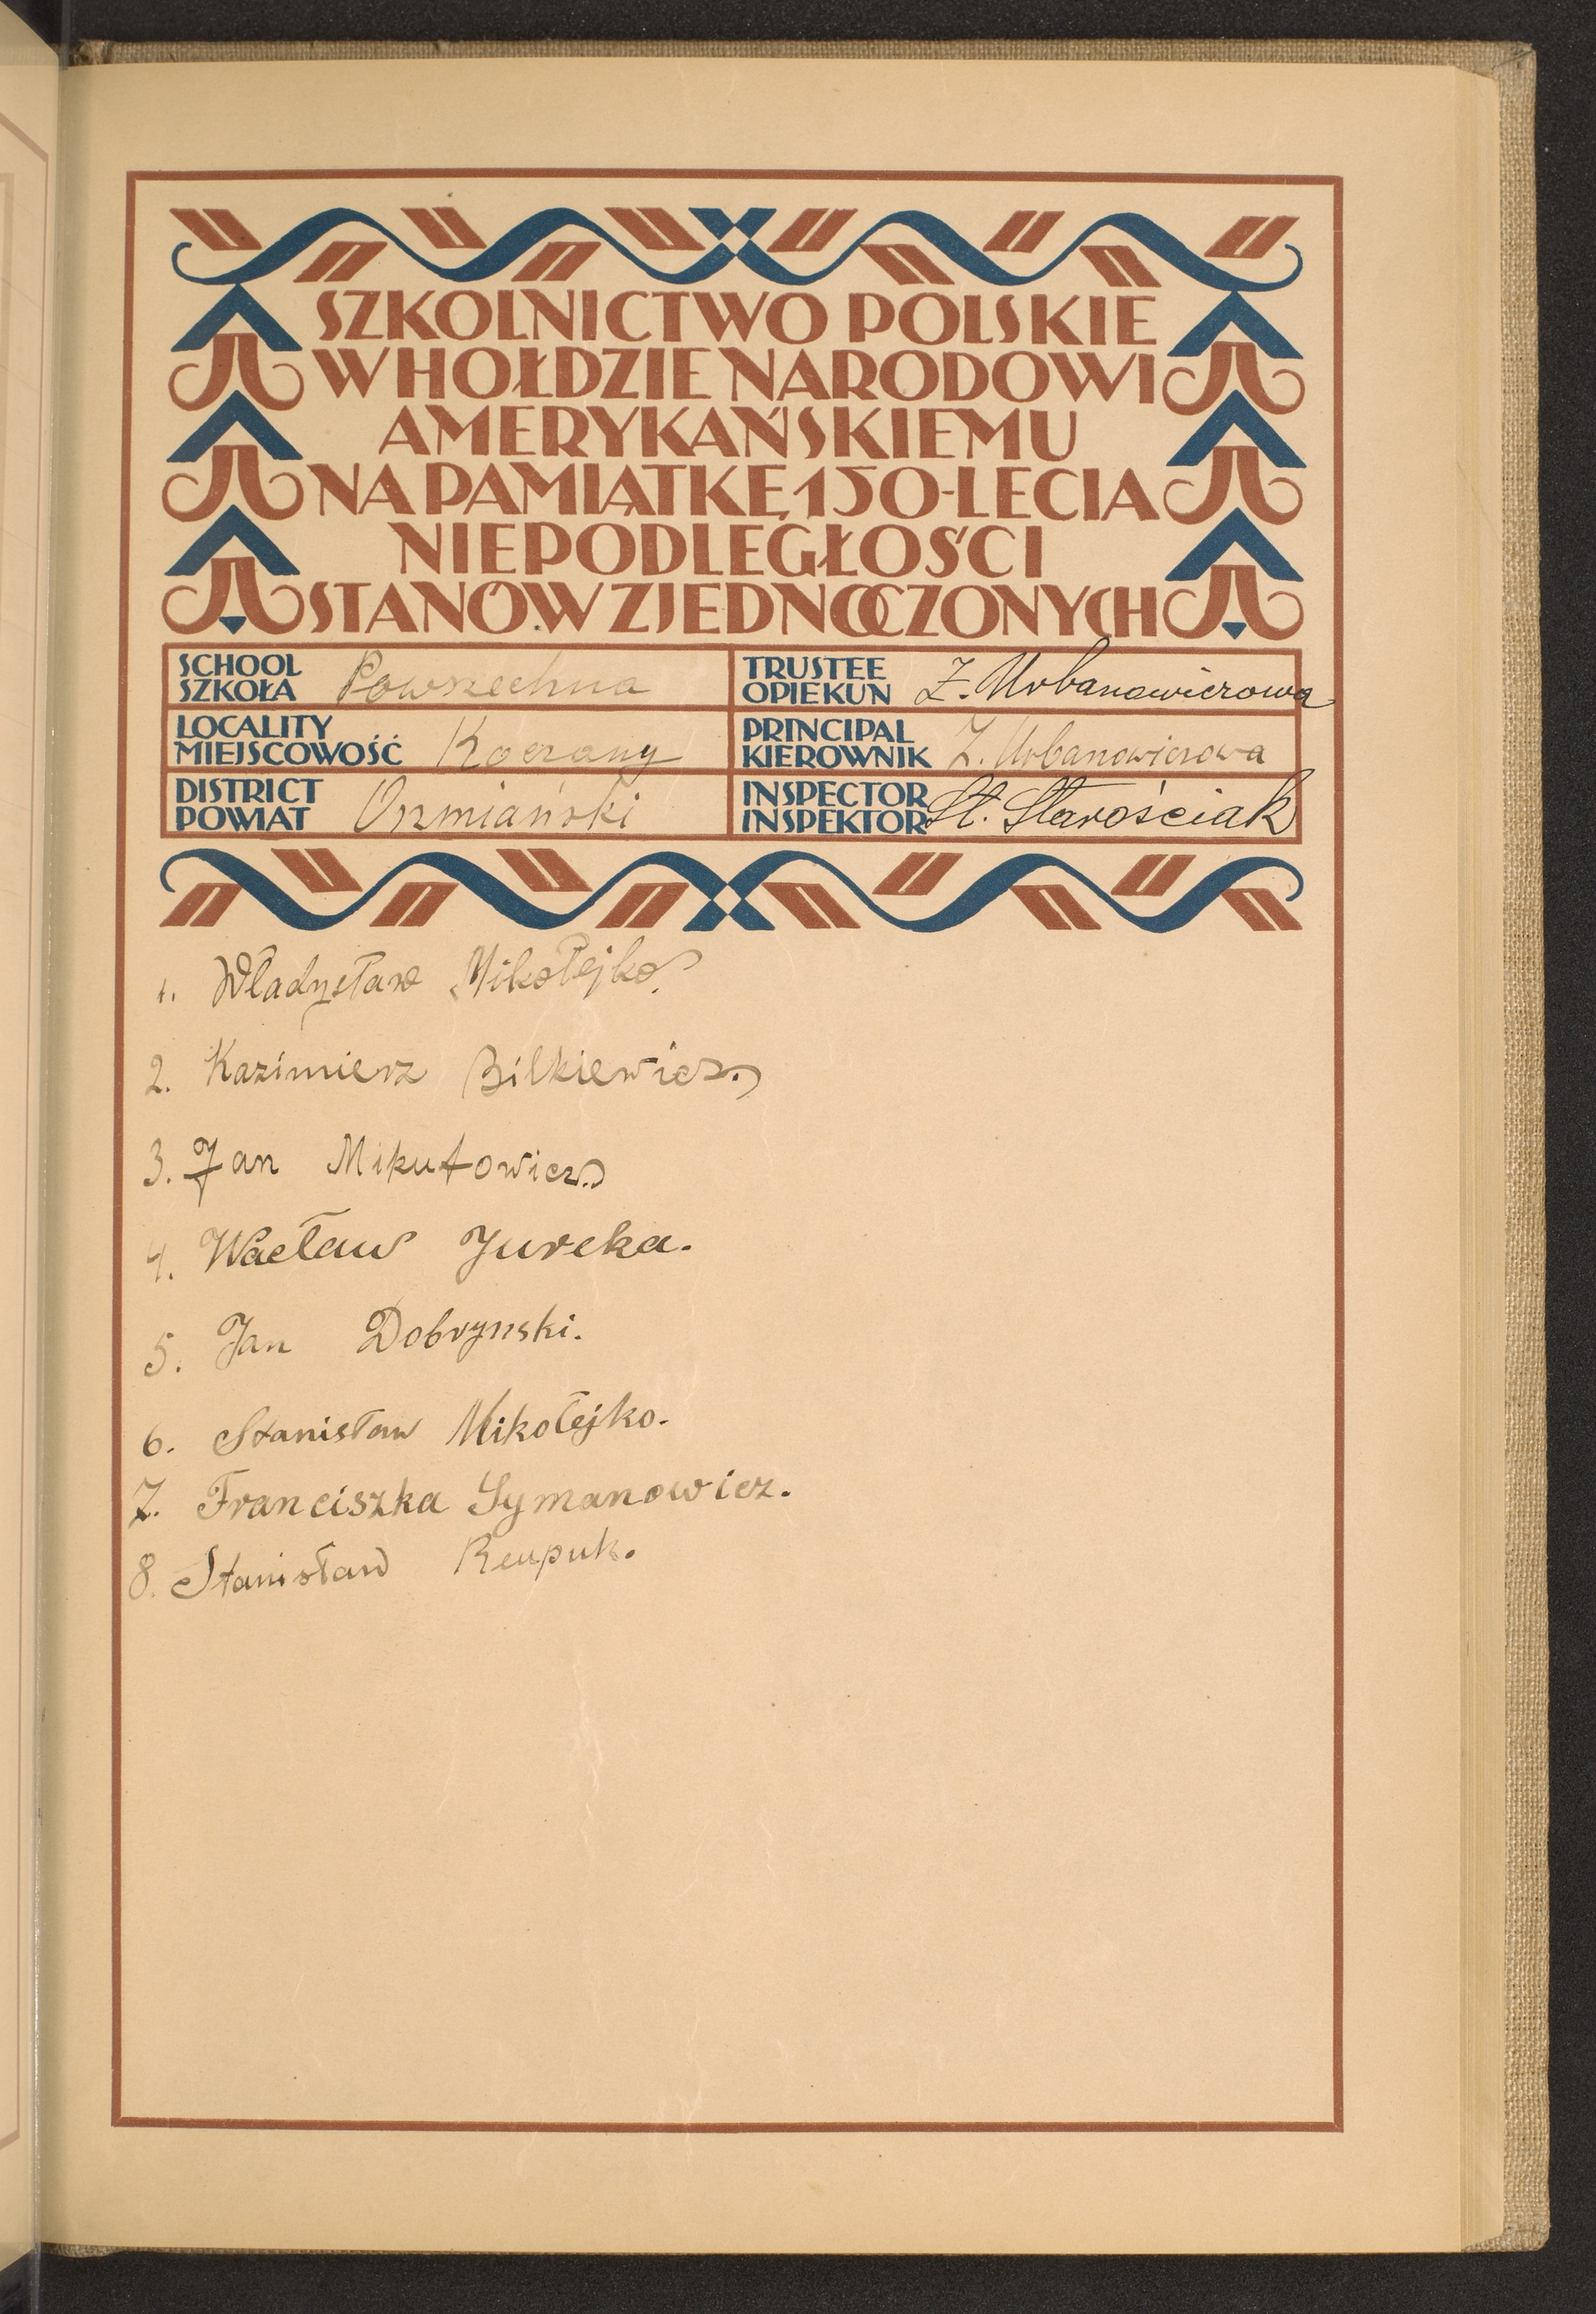 SZKOLNICTWO POLSKIE
W HOŁDZIE NARODOWI
AMERYKAŃSKIEMU
NA PAMIĄTKĘ 150-LECIA
NIEPODLEGŁOŚCI
STANÓW ZJEDNOCZONYCH
SCHOOL
SZKOŁA Powszechna
TRUSTEE
OPIEKUN Z. Urbanowiczowa
LOCALITY
MIEJSCOWOŚĆ Koczany
PRINCIPAL
KIEROWNIK Z. Urbanowiczowa
DISTRICT
POWIAT Oszmiański
INSPECTOR
INSPEKTOR St. Starościak
1. Władysław Mikołejko.
2. Kazimierz Bilkiewicz.
3. Jan Mikutowicz.
4. Wacław Jureka.
5. Jan Dobrynski.
6. Stanisław Mikołejko.
7. Franciszka Symanowicz.
8. Stanisław